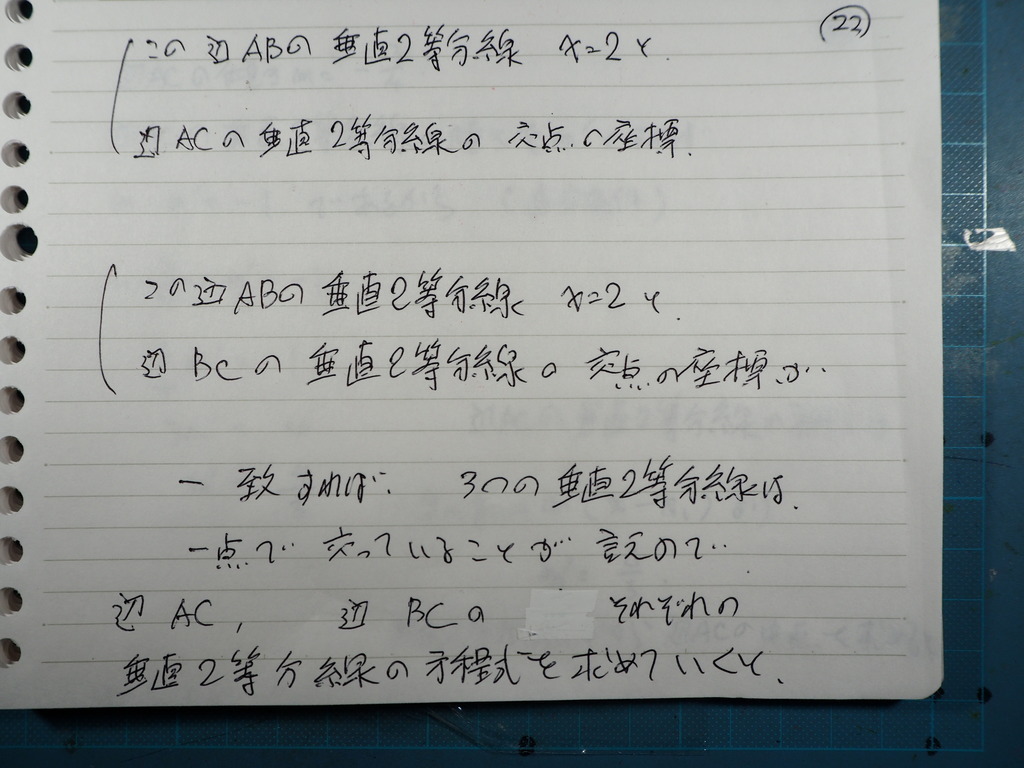 ㉒
この辺ABの垂直2等分線 x=2と
辺ACの垂直2等分線の交点の座標
この辺ABの垂直2等分線 x=2と
辺BCの垂直2等分線の交点の座標が
一致すれば 3つの垂直2等分線は
一点で交っていることが言えので
辺AC, 辺BCの それぞれの
垂直2等分線の方程式を求めていくと